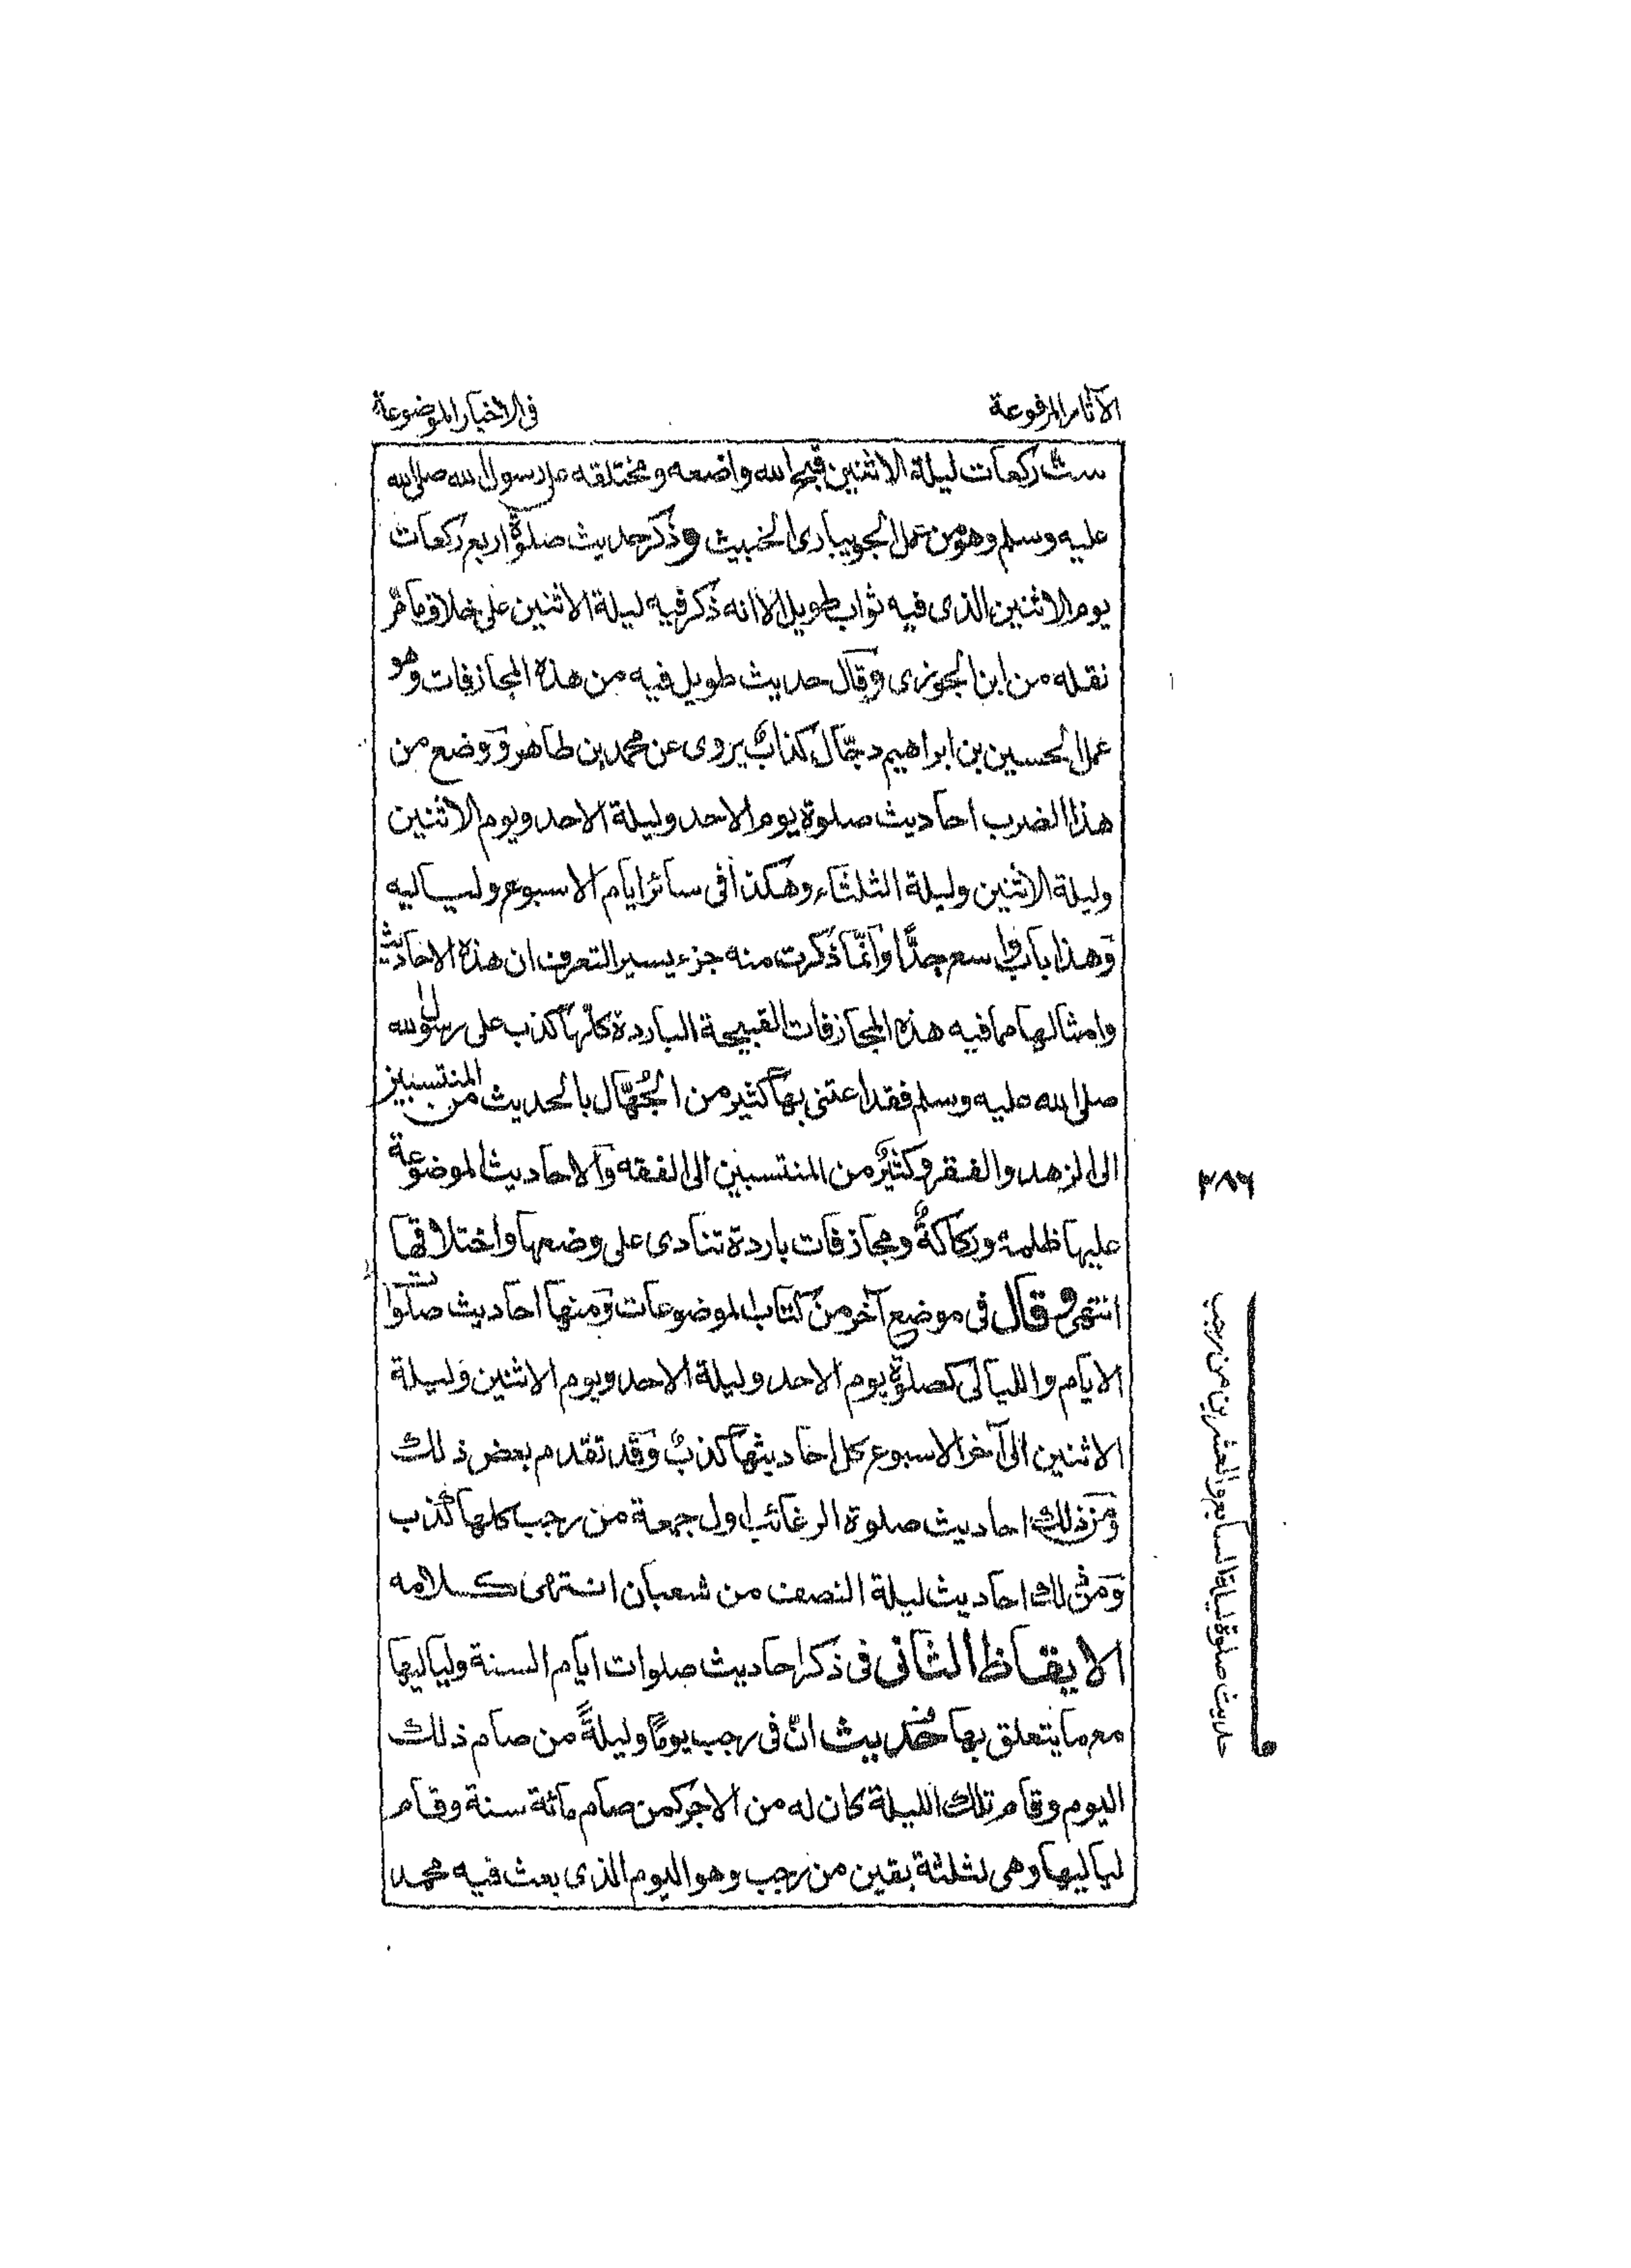 الآثار المرفوعة
فى الاخبار الموضوعة
ست ركعات ليلة الاثنين قبح الله واضعه ومختلقه على رسول الله صلى الله
عليه وسلم وهو من عمل الجويبارى الخبيث وذكر حديث صلوة اربع ركعات
يوم الاثنين الذى فيه ثواب طويل الا انه ذكر فيه ليلة الاثنين على خلاف ما مر
نقله من ابن الجوزى وقال حديث طويل فيه من هذة المجازفات وهو
عمل الحسين بن ابراهيم دجّال كذابٌ يروى عن محمد بن طاهر ووضع من
هذا الضرب احاديث صلوة يوم الاحد وليلة الاحد ويوم الاثنين
وليلة الاثنين وليلة الثلثاء وهكذا فى سائر ايام الاسبوع ولياليه
وهذا باب واسع جدًّا وانّما ذكرت منه جزء يسير التعرف ان هذة الاحاديث
وامثالها مما فيه هذه المجازفات القبيحة الباردة كلّها كذب على رسول الله
صلى الله عليه وسلم فقد اعتنى بها كثير من الجُهّال بالحديث من المنتسبين
الى الزهد والفقر وكثيرٌ من المنتسبين الى الفقه والاحاديث الموضوعة
عليها ظلمة وركاكةٌ ومجازفات باردة تنادى على وضعها واختلاقها
انتهى وقال فى موضع آخر من كتاب الموضوعات ومنها احاديث صلوات
الايام والليالى كصلوة يوم الاحد وليلة الاحد ويوم الاثنين وليلة
الاثنين الى آخر الاسبوع كل احاديثها كذبٌ وقد تقدم بعض ذلك
ومن ذلك احاديث صلوة الرغائب اول جمعة من رجب كلها كذب
ومن ذلك احاديث ليلة النصف من شعبان انتهى كلامه
الايقاظ الثانى فى ذكر احاديث صلوات ايام السنة ولياليها
مع ما يتعلق بها حديث انّ فى رجب يومًا وليلةً من صام ذلك
اليوم وقام تلك الليلة كان له من الاجر كمن صام مائة سنة وقام
لياليها وهى لثلثة بقين من رجب وهو اليوم الذى بعث فيه محمد
٣٨٦
حديث صلوة ليلة السابع والعشرين من رجب